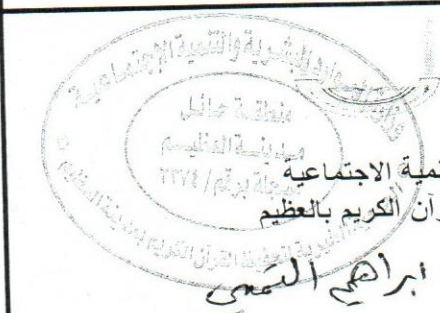 وزارة الموارد البشرية والتنمية الاجتماعية
منطقة حائل
مدينة العظيم
مسجلة برقم / ٣٣٧٤
الجمعية الخيرية لتحفيظ القرآن الكريم بمدينة العظيم
تمية الاجتماعية
رآن الكريم بالعظيم
ابراهيم